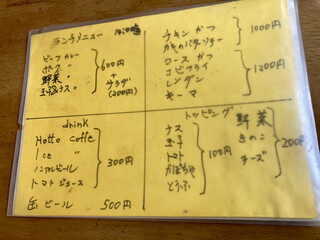 ランチメニュー
ビーフカレー
ポーク 〃
野菜 〃
600円
+
サラダ
(200円)
チキンかつ
1000円
ロースかつ
エビフライ
レンダン
キーマ
1200円
drink
Hotto coffe
Ice 〃
ノンアルビール
トマトジュース
300円
缶ビール 500円
トッピング
ナス
玉子
トマト
かぼちゃ
とうふ
100円
野菜
きのこ
チーズ
200円